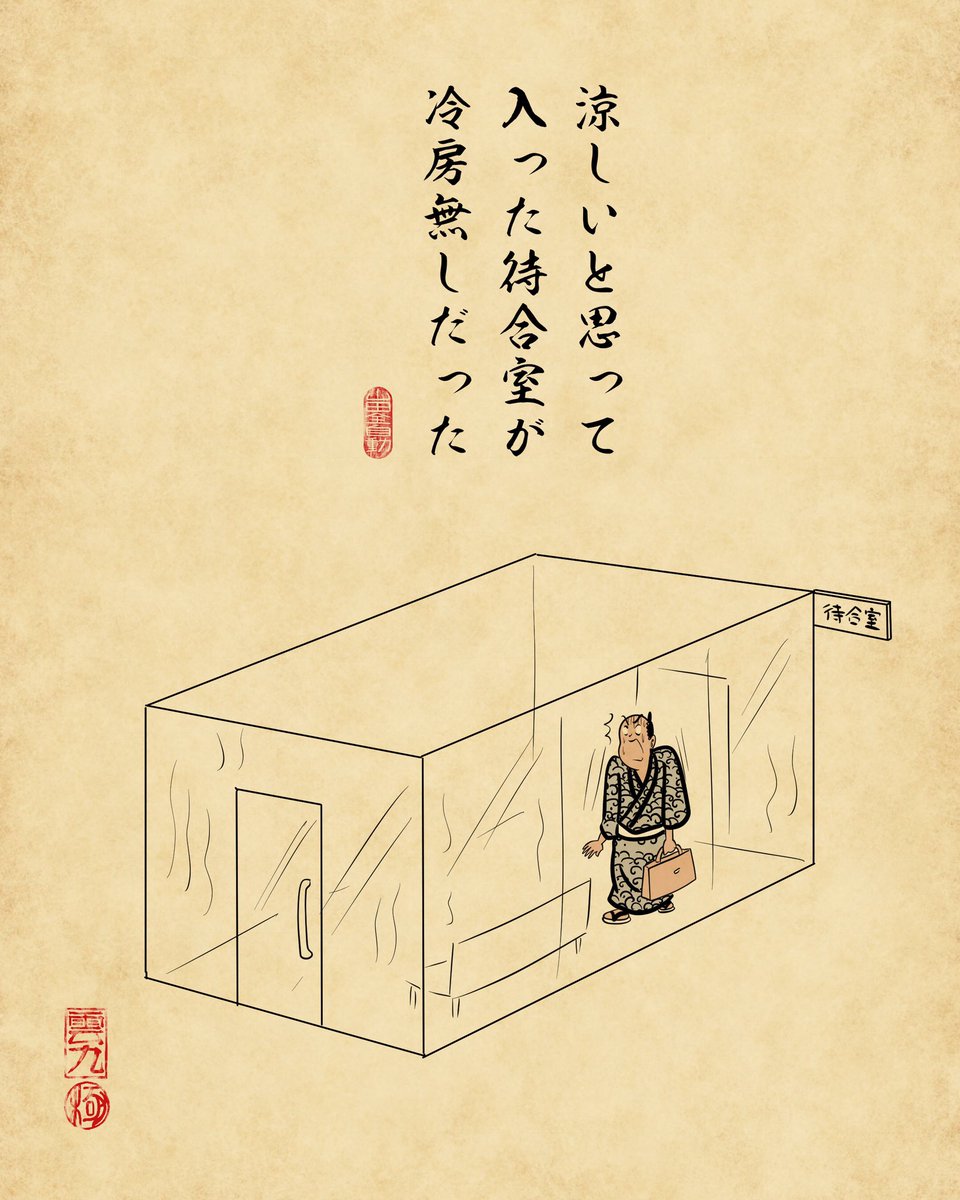 涼しいと思って
入った待合室が
冷房無しだった
待合室